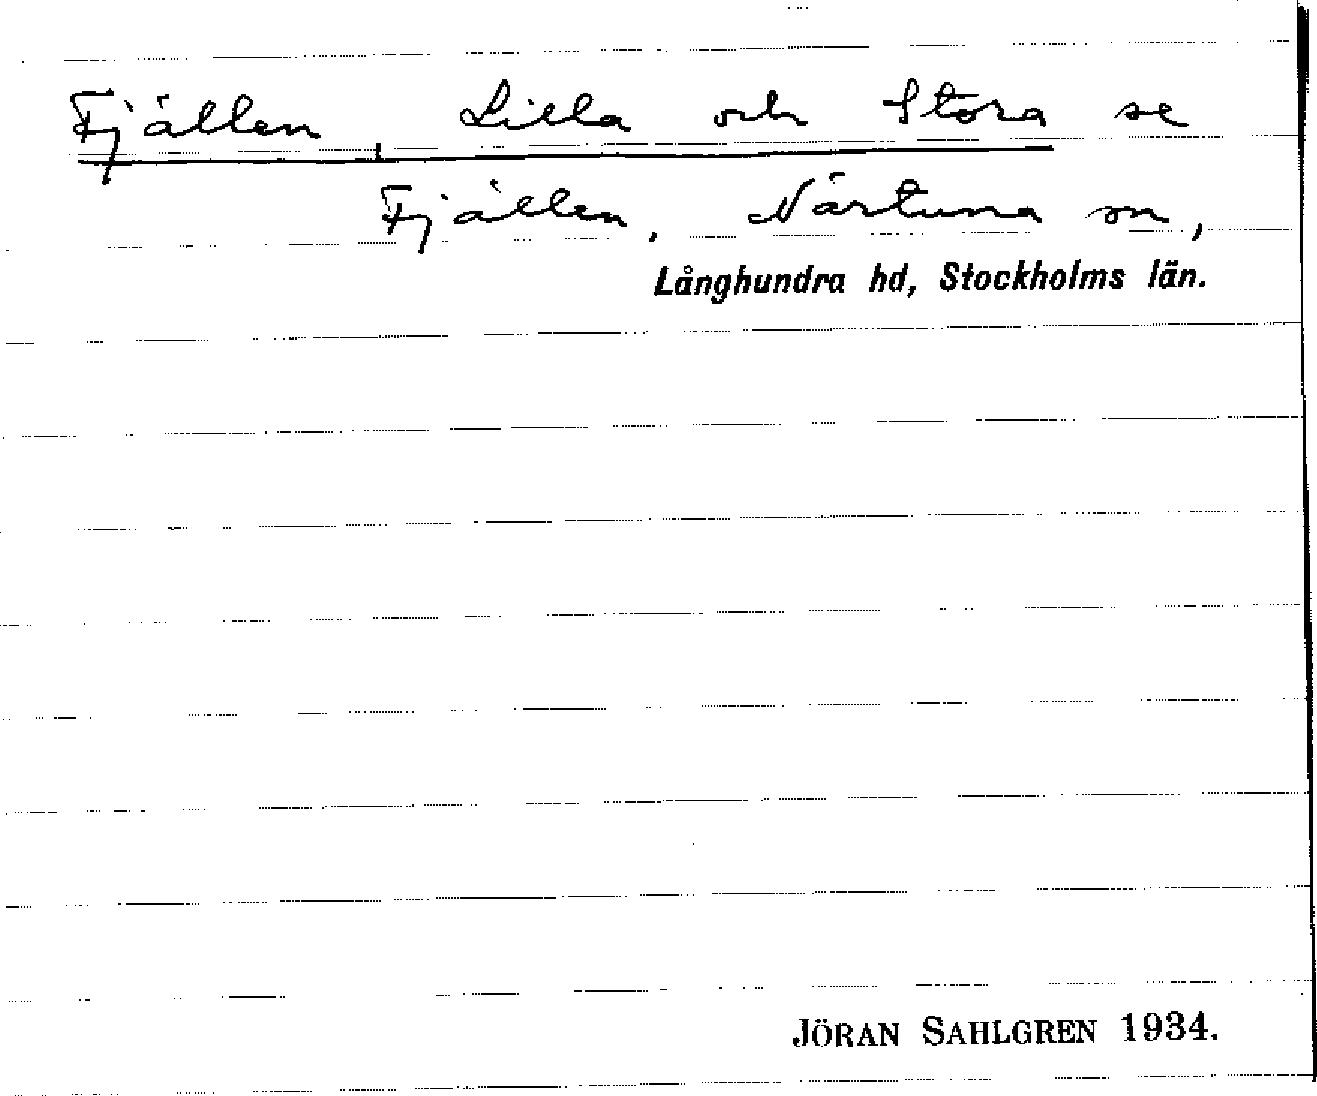 Fjällen, Lilla och Stora se
Fjällen, Närtuna sn,
Långhundra hd, Stockholms län.
JÖRAN SAHLGREN 1934.